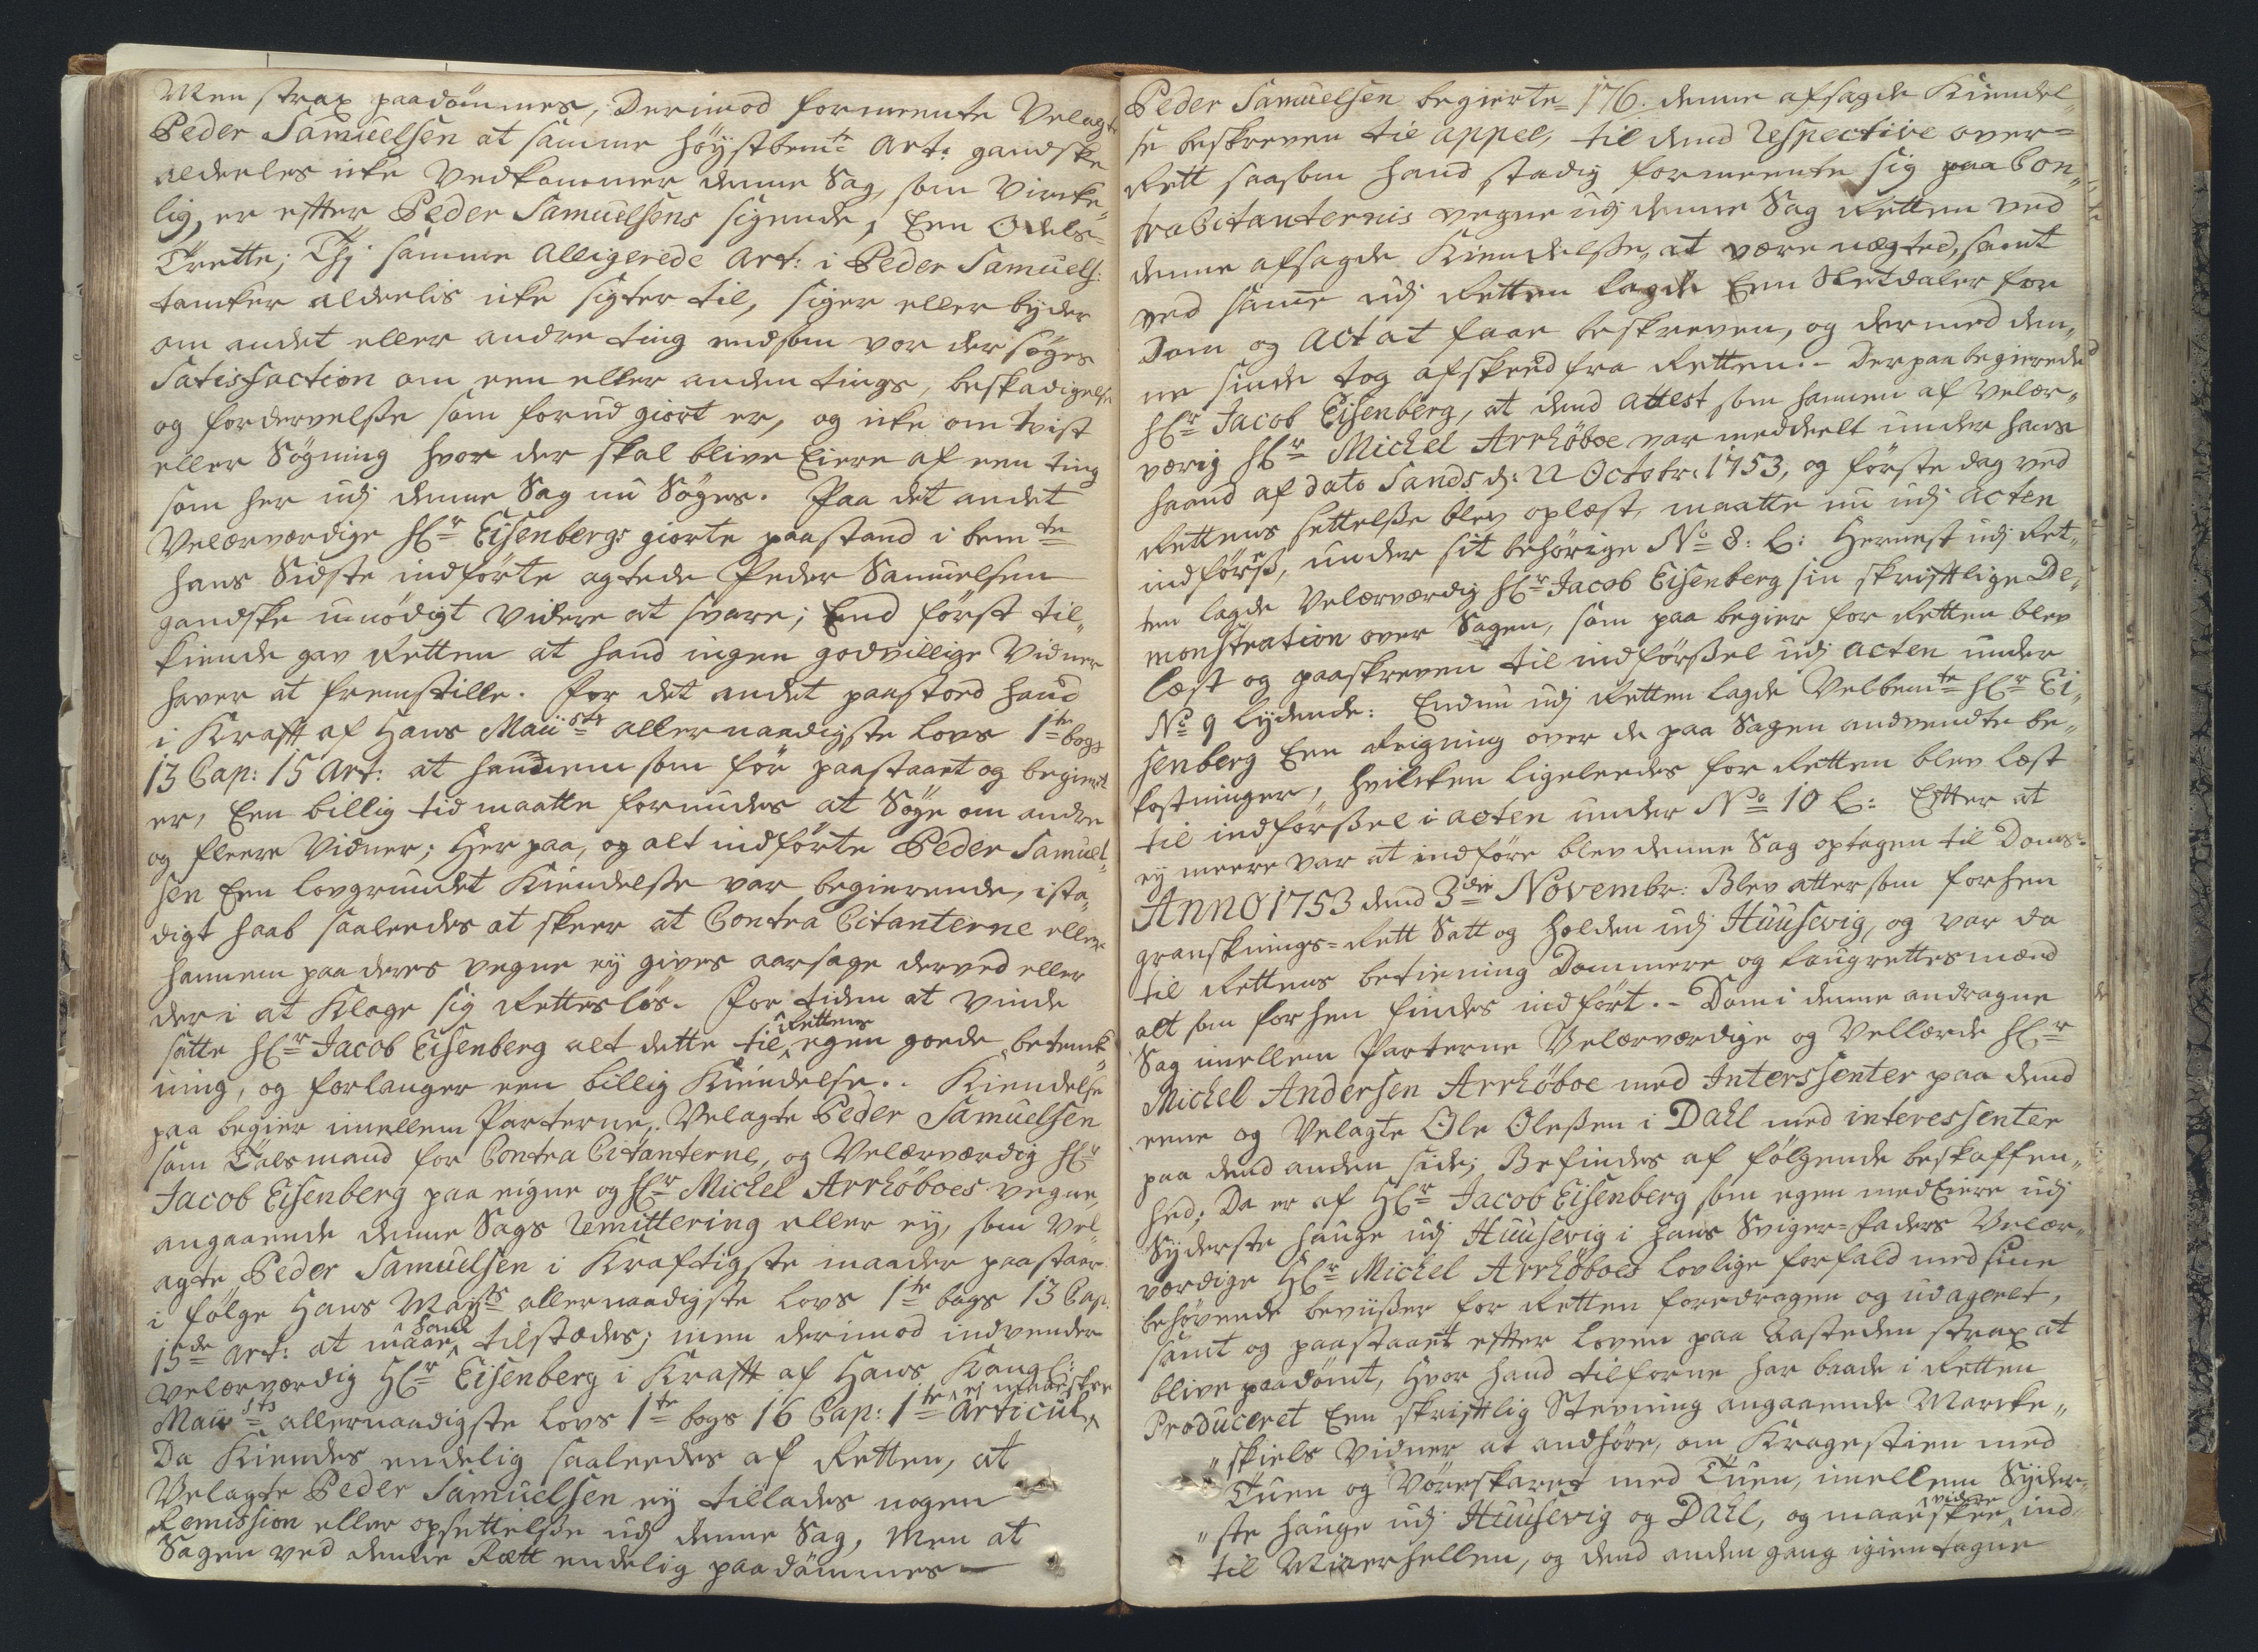 Men strax paadömmes, Derimod formeente Velagte
Peder Samuelsen at samme höystbemte Art: gandske
aldeeles icke Vedkommer denne Sag, som Vircke-
lig, er efter Peder Samuelsens sigende, Een Odels-
Trette; Thj samme Alligerede Art: i Peder Samuels:
tancker aldeelis icke sigter til, siger eller byder
om andet eller andre ting endsom vor der söges
Satisfaction om een eller anden tings, beskadigelse
og fordervelsse som forud giort er, og icke om tvist
eller Sögning hvor der skal blive Eiere af een ting
som her udj denne Sag nu Söges. Paa det andet
Velærværdige Hr Eisenbergs giorte paastand i bemte
hans Sidste indförte agtede Peder Samuelsen
gandske unödigt Videre at svare; End först til-
kiende gav Retten at hand ingen godvillige Vidner
haver at fremstille. For det andet paastoed hand
i Krafft af Hans Maiists allernaadigste Lovs 1te bogs
13 Cap: 15 Art: at hannem som för paastaaet og begiert
er, Een billig tid maatte forundes at Söge om andre
og fleere Vidner; Her paa, og alt indförte Peder Samuel-
sen Een lovgrundet Kiendelsse var begierende, i sta-
digt haab saaleedes at skeer at Contra Citanterne eller
hannem paa deres vegne ej gives aarsage derved eller
deri at Klage sig Rettes lös. For tiden at vinde
satte Hr Jacob Eisenberg alt dette til Rettens egen goede betenk-
ning, og forlanger een billig Kiendelse. Kiendelse
paa begier imellem Parterne, Velagte Peder Samuelsen
som Talsmand for Contra Citanterne, og Velærværdig Hr
Jacob Eisenberg paa eigne og Hr Michel Arrhöboes vegne,
angaaende denne Sags Remittering eller ej, som Vel-
agte Peder Samuelsen i Kraftigste maader paastaar
i fölge Hans Mayts allernaadigste Lovs 1te bogs 13 Cap:
15de Art: at maae hand tilstædes; men derimod indvender
Velærværdig Hr Eisenberg i Krafft af Hans Kongl:
Maiists allernaadigste Lovs 1te bogs 16 Cap: 1te Articul ej maae skee
Da Kiendes endelig saaleedes af Retten, at
Velagte Peder Samuelsen ej tillades nogen
Remission eller opsettelsse udj denne Sag, Men at
Sagen ved denne Rætt endelig paadömmes
Peder Samuelsen begierte 176. denne afsagde Kiendel-
se beskreven til appel, til dend Respective over-
Rett saasom hand stadig formeente sig paa Con-
traCitanternis vegne udj denne Sag Retten ved
denne afsagde Kiendelsse, at være nægted, samt
ved samme udj Retten lagde Een Sletdaler for
Dom og Act at faae beskreven, og dermed den-
ne sinde tog afskeed fra Retten. Derpaa begierede
Hr Jacob Eisenberg, at dend Attest som hannem af Velær-
værdig Hr Michel Arrhöboe var meddeelt under hans
haand af dato Sands d: 22 Octobr: 1753, og förste dag ved
Rettens settelsse blev oplæst, maatte nu udj Acten
indförss, under sit behörige No 8: L: Hernest udj Ret-
ten lagde Velærværdig Hr Jacob Eisenberg sin skrifftlige De-
monstration over Sagen, som paa begier for Retten blev
læst og paaskreven til indförssel udj Acten under
No 9 lydende: Endnu udj Retten lagde Velbemte Hr Ei-
senberg Een Reigning over de paa Sagen anvendte be-
kostninger, hvilcken ligeleedes for Retten blev læst
til indförssel i Acten under No 10 L: Efter at
ej meere var at indföre blev denne Sag optagen til Doms
Anno 1753 dend 3die Novembr: Blev atter som forhen
gransknings-Rett Satt og holden udj Huusevig, og var da
til Rettens betiening Dommere og Laugrettesmænd
alt som forhen findes indfört. Dom i denne andragne
Sag imellem Parterne Velærværdige og Vellærde Hr
Michel Andersen Arrhöboe med Interssenter paa dend
eene og Velagte Ole Olessen i Dahl med interessenter
paa dend anden side; Befindes af fölgende beskaffen-
hed; Da er af Hr Jacob Eisenberg som egen medEiere udj
Syderste Hauge udj Huusevig i hans Sviger-Faders Velær-
værdige Hr Michel Arrhöboes lovlige forfald med sine
behövende bevisser for Retten foredragen og udageret,
samt og paastaaet efter loven paa Aasteden strax at
blive paadömt, Hvor hand tilforne har baade i Retten
Produceret Een skrifftlig Stevning angaaende Marcke-
skiels Vidner at anhöre, om Kragestien med
Tuen og Vöreskaret med Tuen, imellem Syder-
ste Hauge udj Huusevig og Dahl, og maaeskee videre ind-
til Maaerhellen, og dend anden gang igientagne